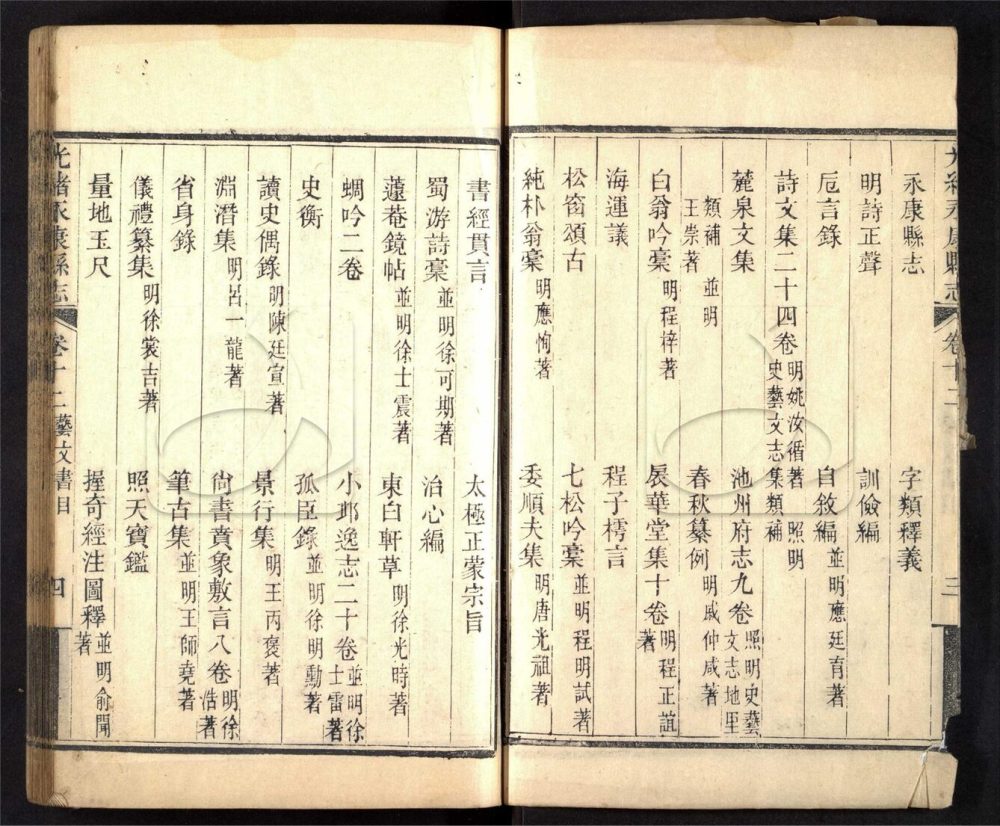 永康縣志
字類釋義
明詩正聲
訓儉編
卮言錄
自敘編並明應廷育著
詩文集二十四卷明姚汝循著照明史藝文志集類補
麓泉文集
池州府志九卷照明史藝文志地里類補並明王崇著
春秋纂例明戚仲咸著
白翁吟稾明程梓著
辰華堂集十卷明程正誼著
海運議
程子樗言
松窗頌古
七松吟稾並明程明試著
純朴翁稾明應恂著
委順夫集明唐光祖著
光緒永康縣志 卷十二
三
書經貫言
太極正蒙宗旨
蜀游詩稾並明徐可期著
治心編
蘧菴鏡帖並明徐士震著
東白軒草明徐光時著
蜩吟二卷
小邾逸志二十卷並明徐士雷著
史衡
孤臣錄並明徐明勳著
讀史偶錄明陳廷宣著
景行集明王丙褒著
淵潛集明呂一龍著
尙書賁象敷言八卷明徐浩著
省身錄
筆古集並明王師堯著
儀禮纂集明徐裳吉著
照天寶鑑
量地玉尺
握奇經注圖釋並明俞聞著
光緒永康縣志 卷十二藝文書目
四